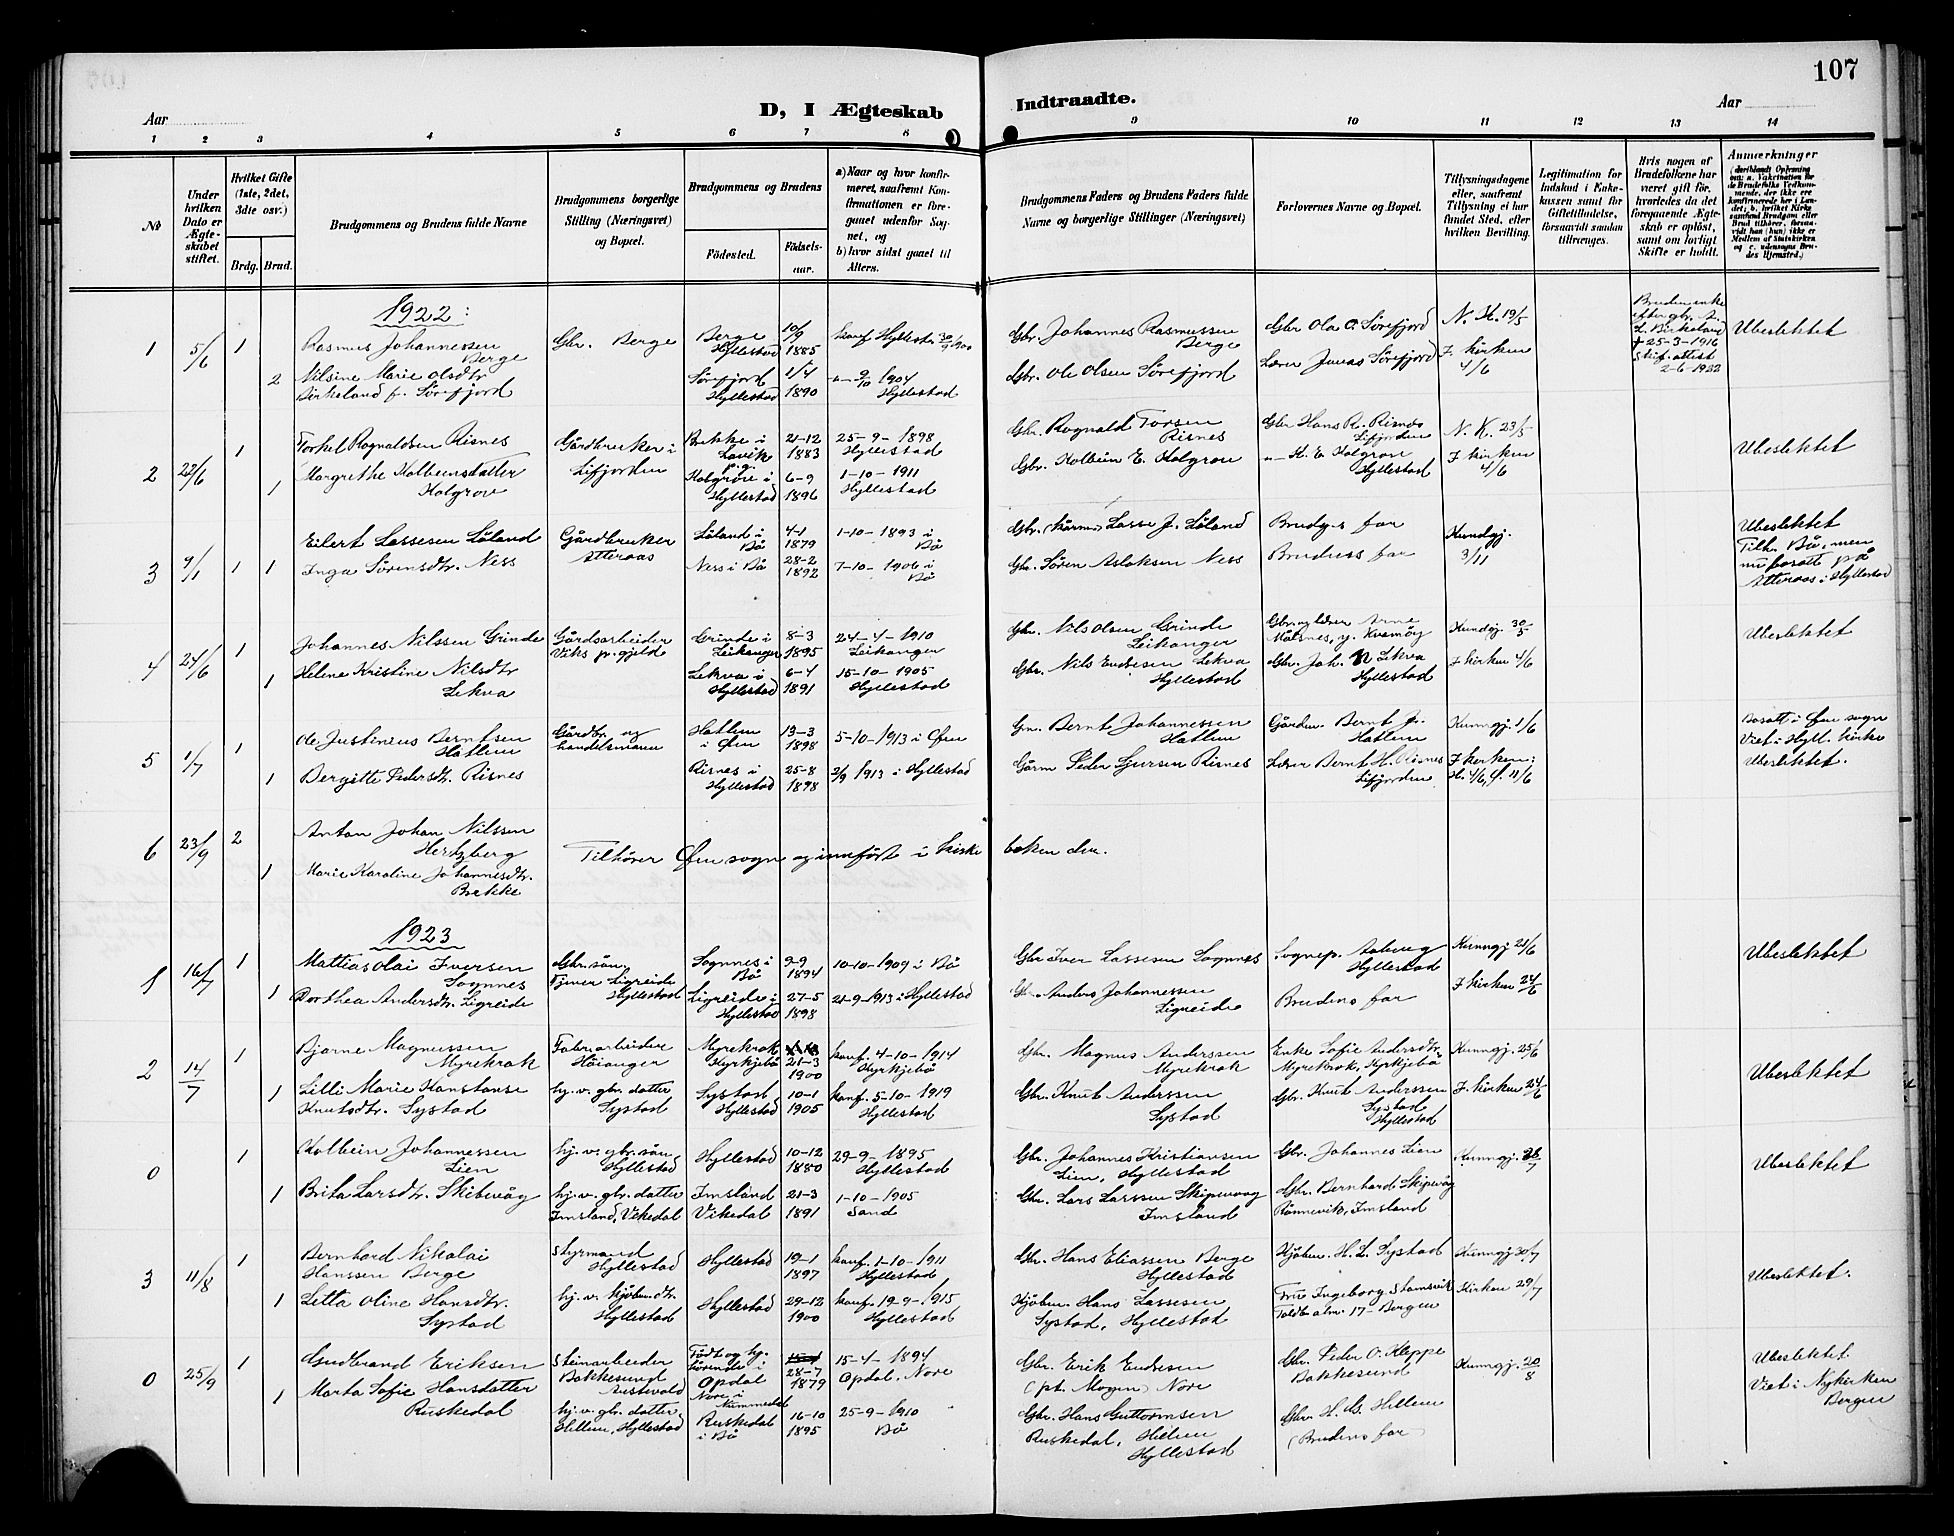 107
D, I Ægteskab Indtraadte.
Aar
Aar
1 2 3 4 5 6 7 8 9 10 11 12 13 14
No
Under hvilken Dato er Ægteskabet stiftet.
Hvilket Gifte (1ste, 2det, 3dte osv.)
Brdg. Brud.
Brudgommens og Brudens fulde Navne
Brudgommens borgerlige Stilling (Næringsvei) og Bopæl.
Brudgommens og Brudens
Fødested.
Fødselsaar.
a) Naar og hvor konfirmeret, saafremt Konfirmationen er foregaaet udenfor Sognet, og
b) hvor sidst gaaet til Alters.
Brudgommens Faders og Brudens Faders fulde Navne og borgerlige Stillinger (Næringsvei)
Forlovernes Navne og Bopæl.
Tillysningsdagene eller, saafremt Tillysning ei har fundet Sted, efter hvilken Bevilling.
Legitimation for Indskud i Enkekassen samt for Giftetilladelse, forsaavidt saadan tiltrænges.
Hvis nogen af Brudefolkene har været gift før, hvorledes da det foregaaende Ægteskab er opløst, samt om lovligt Skifte er holdt.
Anmærkninger
(deriblandt Oplysning om: a. Vakcination for de Brudefolks Vedkommende, der ikke ere konfirmerede her i Landet; b. hvilket Kirkesamfund Brudgom eller Brud tilhører, forsaavidt han (hun) ikke er Medlem af Statskirken og c. udensogns Brudes Hjemsted.)
1922:
1 5/6 1 Rasmus Johannessen Berge Gbr. Berge Berge Hyllestad 10/9 1885 konf. Hyllestad 30/9 1900 Gbr. Johannes Rasmussen Berge Gbr Ola O. Sørefjord N. H. 19/5 Bruden enke efter gbr. Birkeland † 25-3-1916 Skif. attest 2-6-1922 Ubeslektet
2 Nilsine Marie Olsdtr Birkeland f. Sørefjord Sørefjord Hyllestad 1/4 1890 1904 Hyllestad Gbr. Ole Olsen Sørefjord Lærer Jonas Sørefjord I kirken 4/6
2 1 Torkel Rognaldsen Risnes Gårdbruker i Lifjorden Brekke i Lavik p.g. 21-12 1883 25-9-1898 Hyllestad Gbr. Rognald Torsen Risnes Gbr Hans R. Risnes Lifjorden N. K. 23/5 Ubeslektet
1 Margrethe Kolbeinsdatter Holgrov Holgrov i Hyllestad 6-9 1896 1-10-1911 Hyllestad Gbr. Kolbein E. Holgrov H. E. Holgrov Hyllestad I kirken 4/6
3 1 1 Eilert Lassesen Løland Gårdbruker Atteraas Løland i Bø 4-1 1879 1-10-1893 i Bø Gbr. Lasse J. Løland Brudg.s far Kundgj. 3/11 Ubeslektet Tilh. Bø, men nu bosatt på Atteraas i Hyllestad
Inga Sørensdtr. Ness Ness i Bø 28-2 1892 7-10-1906 i Bø Gbr. Søren Aslaksen Ness Brudens far
4 24/6 1 Johannes Nilssen Grinde Gårdsarbeider Viks p. gjeld Grinde i Leikanger 8-3 1895 24-4-1910 Leikanger Gbr. Nils Olsen Grinde Leikanger Kundgj. 30/5 Ubeslektet
1 Helene Kristine Nilsdtr Lekva Lekva i Hyllestad 6-4 1891 15-10-1905 Hyllestad Gbr. Nils Endresen Lekva Hyllestad Gbr. Joh. N Lekva Hyllestad I kirken 4/6
5 1/7 1 Ole Justinius Berntsen Hatlem Gårdbr. og handelsmann Hatlem i Øen 13-3 1898 5-10-1913 i Øen Gm. Bernt Johannessen Hatlem Gårdm. Bernt J. Hatlem Kunngj. 1/6 Bosatt i Øen sogn Viet i Hyll. kirke Ubeslektet.
1 Bergitte Pedersdtr. Risnes Risnes i Hyllestad 25-8 1898 1913 i Hyllestad Gårm Peder Risnes Lærer Bernt H. Risnes Lifjorden I kirken: H. 4/6, Ø. 11/6
6 23/9 2 Anton Johan Nilssen Hertzberg Tilhører Øen sogn og innført i kirkeboken der.
1 Marie Karoline Johannesdtr. Brekke
1923
1 16/7 1 Mattias Olai Iversen Sognnes Gbr. søn. Tjener Ligreide Hyllestad Sognnes i Bø 9-9 1894 10-10-1909 i Bø Gbr Iver Lassesen Sognnes Sognep. Aaberg Hyllestad Kunngj 21/6 Ubeslektet
1 Dorthea Andersdtr. Ligreide Ligreide i Hyllestad 27-5 1898 21-9-1913 i Hyllestad Gbr. Anders Johannessen Ligreide Brudens far I kirken 24/6
2 14/7 1 Bjarne Magnussen Myrekrok Fabr. arbeider Høianger Myrekrok Kyrkjebø 21-3 1900 konf. 4-10-1914 Kyrkjebø Gbr. Magnus Anderssen Myrekrok Enke Sofie Andersdtr. Myrekrok, Kyrkjebø Kunngj. 25/6 Ubeslektet
1 Lilli Marie Konstanse Knutsdtr. Systad hj. v. gbr. datter Systad Systad Hyllestad 10-1 1905 konf. 5-10-1919 Hyllestad Gbr. Knut Anderssen Systad Gbr. Knut Anderssen Systad Hyllestad I kirken 24/6
0 1 Kolbein Johannessen Lien hj. v. gbr. søn Hyllestad Hyllestad 10-12 1880 29-9-1895 Hyllestad Gbr. Johannes Kristiansen Lien, Hyllestad Gbr. Johannes Lien Kunngj. Ubeslektet
1 Brita Larsdtr. Skipevåg hj. v. gbr. datter Imsland, Vikedal Imsland Vikedal 21-3 1891 1-10-1905 Sand Gbr. Lars Larssen Skipevåg Imsland Gbr. Bernhard Skipevåg Rønnevik, Imsland
3 11/8 1 Bernhard Nikolai Hanssen Berge Styrmand Hyllestad Hyllestad 19-1 1897 konf. 1-10-1911 Hyllestad Gbr. Hans Eliassen Berge Hyllestad Kjøbm. H. L. Systad Kunngj 30/7 Ubeslektet.
1 Litta Oline Hansdtr. Systad hj. v. kjøbm. dtr. Hyllestad Hyllestad 29-12 1900 konf. 19-9-1915 Hyllestad Kjøbm. Hans Lassesen Systad, Hyllestad Frø Ingeborg Stamsvik Toldb. alm. 17 - Bergen Kirken 29/7
0 25/9 1 Gudbrand Eriksen Steinarbeider Bakkesund Austevold Født og hj. hørende i Opdal Nore i Nummedal 28-7 1879 15-4-1894 Opdal, Nore Gbr. Erik Endresen (pt. Mogen) Nore Gbr. Peder O. Kleppe Bakkesund Kunngj. 20/8 Ubeslektet. Viet i Nykirken Bergen
1 Marta Sofie Hansdatter Ruskedal hj. v. gbr. datter Hellem, Hyllestad Ruskedal i Bø 16-10 1895 25-9-1910 Bø Gbr. Hans Guttormsen Ruskedal, Hellem Hyllestad Gbr. H. G. Hellem (Brudens far)